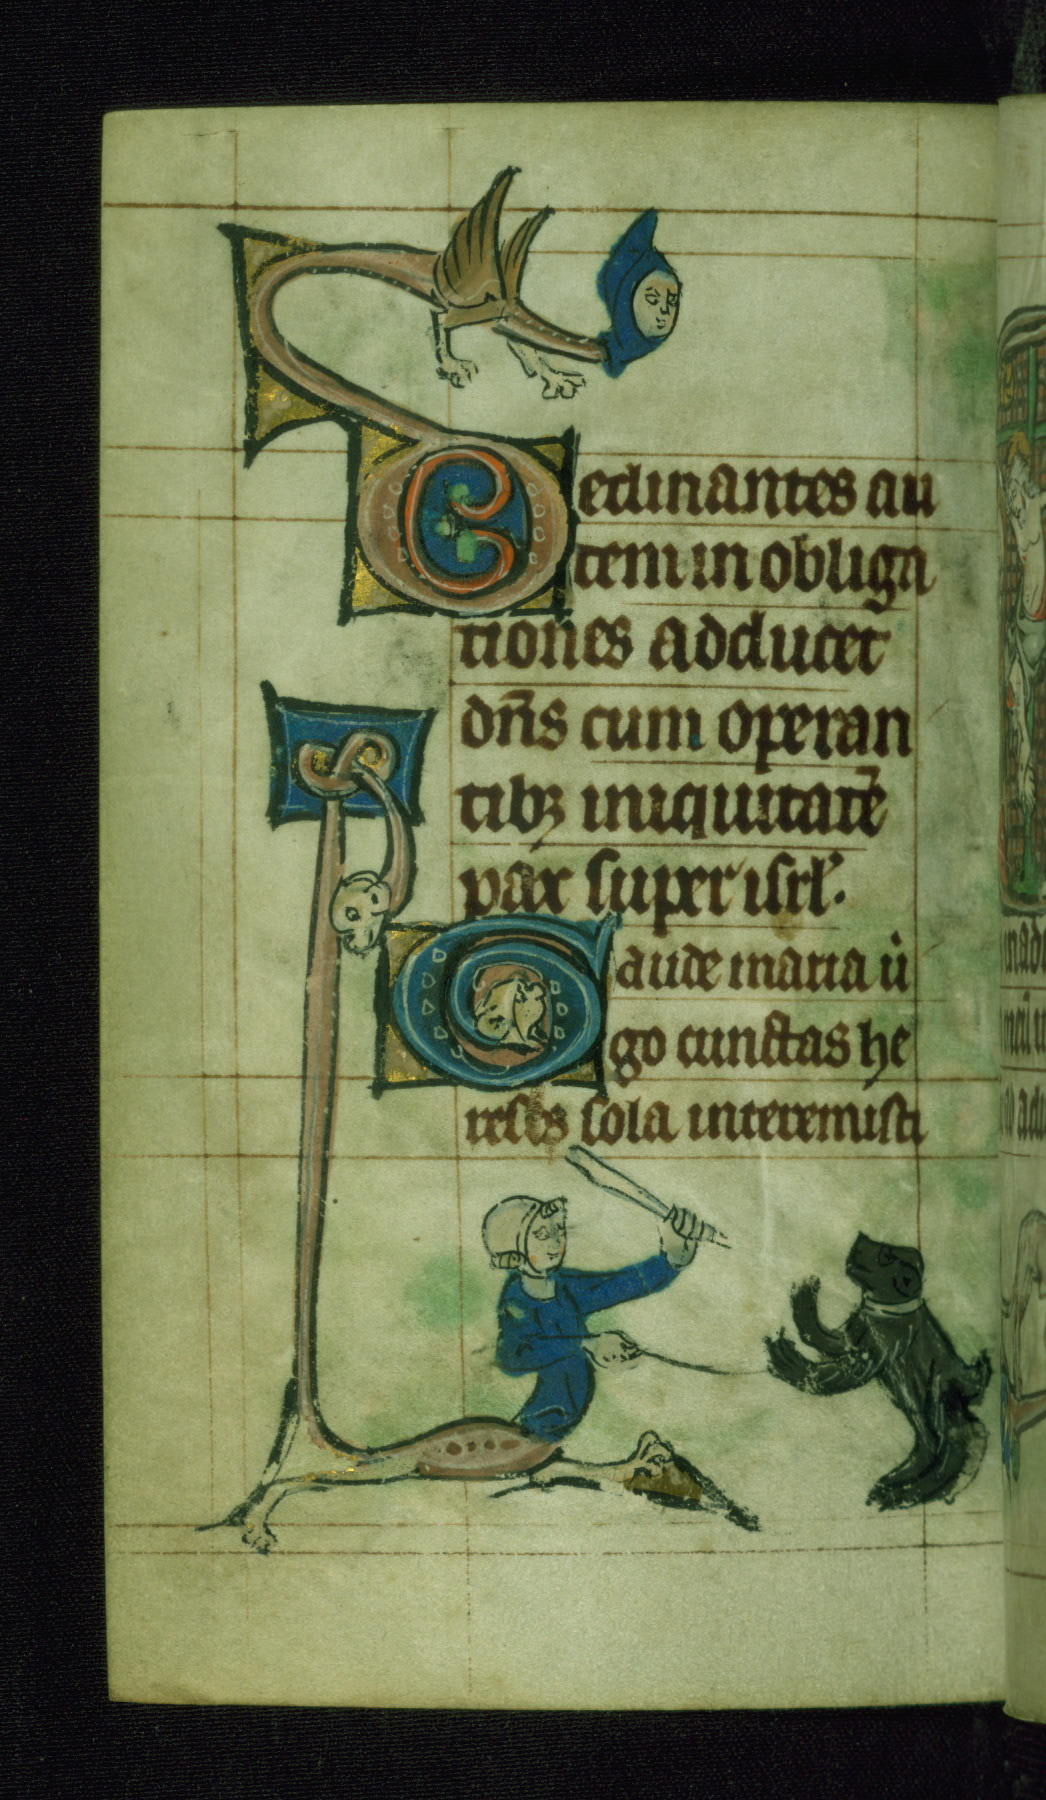 Declinantes au
tem in obliga
tiones adducet
dñs cum operan
tibꝫ iniquitatē
pax super isrl'.
Gaude maria ù
go cunctas he
reses sola interemisti